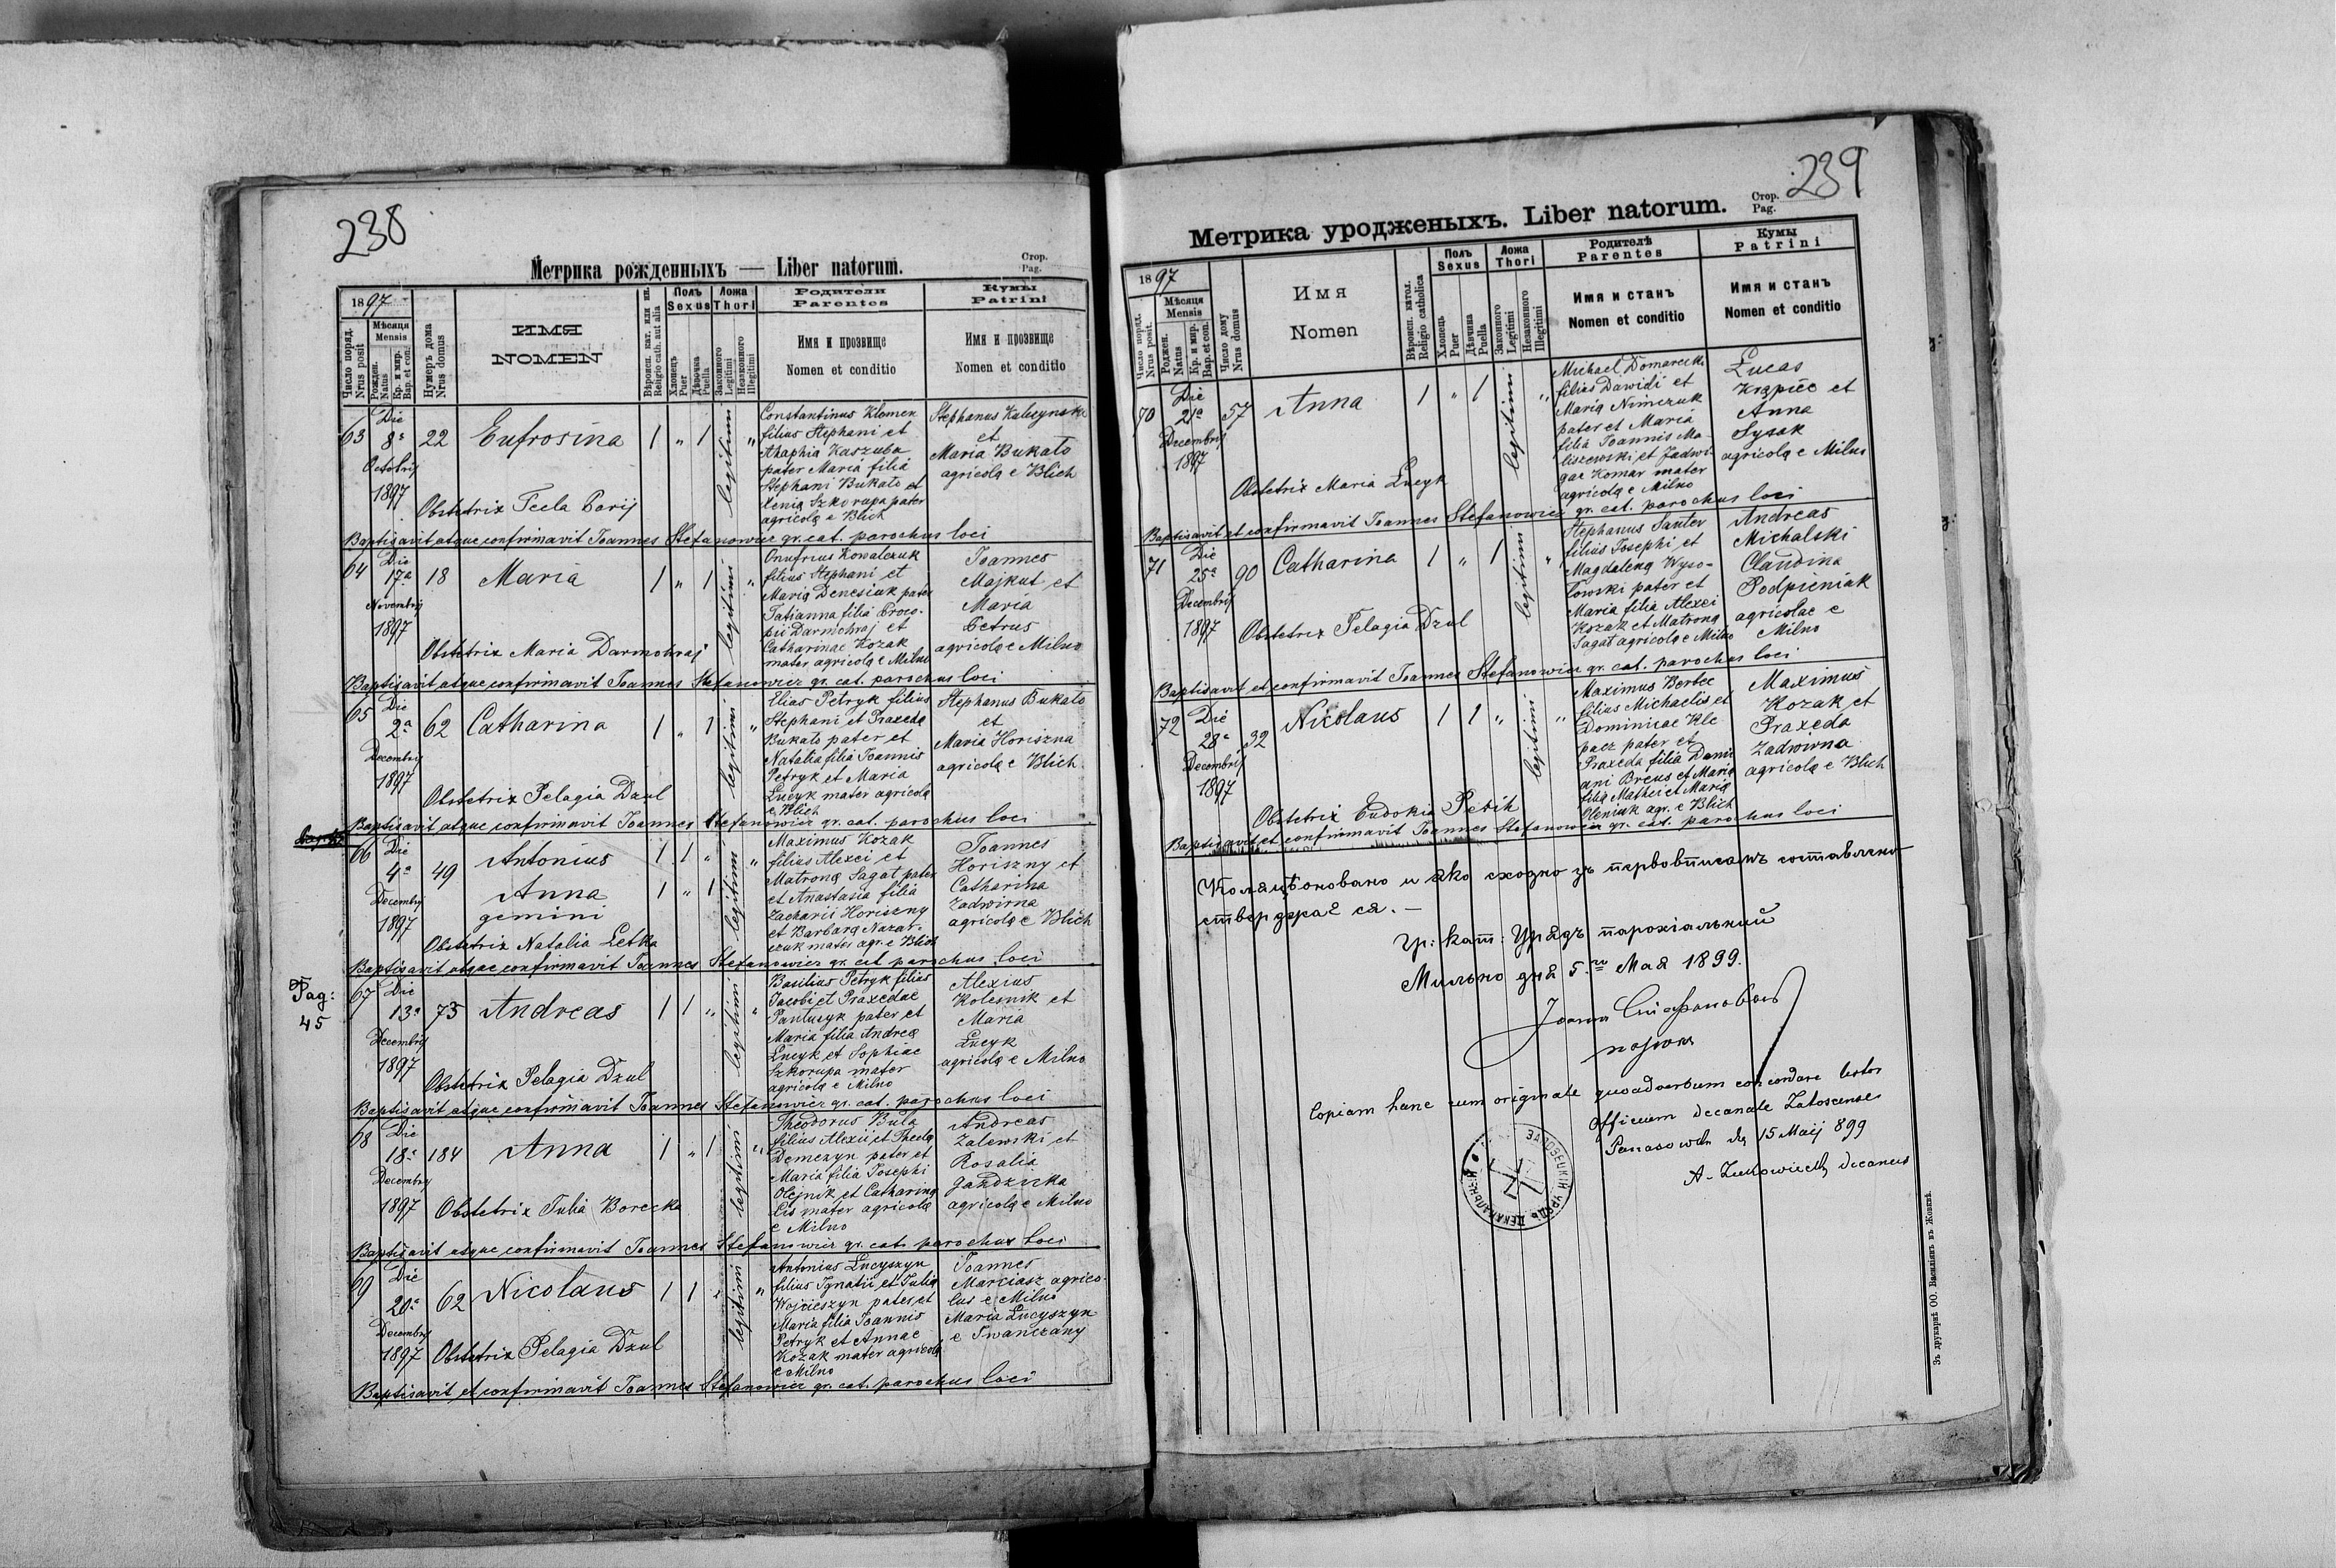 238
Метрика рожденныхъ — Liber natorum.
Стор.
Pag.
1897
Число поряд.
Nrus posit
Мѣсяця
Mensis
Рожден.
Natus
Кр. и мир.
Bap. et con.
Нумеръ дома
Nrus domus
ИМЯ
NOMEN
Вѣроисп. кат. или ин.
Religio cath. aut alia
Полъ
Sexus
Хлопець
Puer
Дѣвочка
Puella
Ложа
Thori
Законного
Legitimi
Незаконного
Illegitimi
Родители
Parentes
Имя и прозвище
Nomen et conditio
Кумы
Patrini
Имя и прозвище
Nomen et conditio
63
Die
8ª
Octobrij
1897
22
Eufrosina
1 " 1 legitimi "
Constantinus Klemen
filius Stephani et
Ahaphia Kaszuba
pater Maria filia
Stephani Bukato et
Xenia Szkorupa pater
agricolę e Blich
Stephanus Kuluznski
et
Maria Bukato
agricolę e Blich
Obstetrix Tecla Parij
Baptisavit atque confirmavit Joannes Stefanowicz gr. cat. parochus loci
64
Die
17ª
Novembrij
1897
18
Maria
1 " 1 legitimi "
Onufrius Kowalczuk
filius Stephani et
Maria Denesiuk pater
Tatianna filia Proco-
pii Darmohraj et
Catharinae Kozak
mater agricolę e Milno
Joannes
Majkut et
Maria
Petrus
agricolę e Milno
Obstetrix Maria Darmohraj
Baptisavit atque confirmavit Joannes Stefanowicz gr. cat. parochus loci
65
Die
2ª
Decembrij
1897
62
Catharina
1 " 1 legitimi "
Elias Petryk filius
Stephani et Praxeda
Bukato pater et
Natalia filia Joannis
Petryk et Maria
Łucyk mater agricolę
e Blich
Stephanus Bukato
et
Maria Horiszna
agricolę e Blich
Obstetrix Pelagia Dzul
Baptisavit atque confirmavit Joannes Stefanowicz gr. cat. parochus loci
66
Die
4ª
Decembrij
1897
49
Antonius
Anna
gemini
1 1 "
1 " 1
legitimi "
Maximus Kozak
filius Alexei et
Matrona Sagat pater
et Anastasia filia
Zacharii Horiszny
et Barbara Nazar-
czuk mater agr. e Blich
Joannes
Horiszny et
Catharina
Zadwirna
agricolę e Blich
Obstetrix Natalia Letka
Baptisavit atque confirmavit Joannes Stefanowicz gr. cat. parochus loci
Pag:
45
67
Die
13ª
Decembrij
1897
73
Andreas
1 1 " legitimi "
Basilius Petryk filius
Jacobi et Praxedae
Pantuzyk pater et
Maria filia Andrea
Łucyk et Sophiae
Szkorupa mater
agricolę e Milno
Alexius
Kolesnik et
Maria
Łucyk
agricolę e Milno
Obstetrix Pelagia Dzul
Baptisavit atque confirmavit Joannes Stefanowicz gr. cat. parochus loci
68
Die
18ª
Decembrij
1897
184
Anna
1 " 1 legitimi "
Theodorus Bula
filius Alexii et Thecla
Demczyn pater et
Maria filia Josephi
Olejnik et Catharina
Lis mater agricolę
e Milno
Andreas
Zalewski et
Rosalia
Gandzicka
agricolę e Milno
Obstetrix Julia Borecka
Baptisavit atque confirmavit Joannes Stefanowicz gr. cat. parochus loci
69
Die
20ª
Decembrij
1897
62
Nicolaus
1 1 " legitimi "
Antonius Łucyszyn
filius Ignatii et Julia
Wojcieszyn pater et
Maria filia Joannis
Petryk et Annae
Kozak mater agricolę
e Milno
Joannes
Marciasz agrico-
lus e Milno
Maria Łucyszyn
e Iwanczany
Obstetrix Pelagia Dzul
Baptisavit et confirmavit Joannes Stefanowicz gr. cat. parochus loci
239
Метрика уродженыхъ. Liber natorum.
Стор.
Pag.
1897
Число поряд.
Nrus posit.
Мѣсяця
Mensis
Рожден.
Natus
Кр. и мир.
Bap. et con.
Число дому
Nrus domus
Имя
Nomen
Вѣроисп. катол.
Religio catholica
Полъ
Sexus
Хлопець
Puer
Дѣвчина
Puella
Ложа
Thori
Законного
Legitimi
Незаконного
Illegitimi
Родителѣ
Parentes
Имя и станъ
Nomen et conditio
Кумы
Patrini
Имя и станъ
Nomen et conditio
70
Die
21ª
Decembrij
1897
57
Anna
1 " 1 legitimi "
Michael Domarecki
filius Dawidi et
Maria Nimczuk
pater et Maria
filia Joannis Ma-
liszewski et Jadwi-
gae Komar mater
agricolę e Milno
Lucas
Krzpiec et
Anna
Sysak
agricolę e Milno
Obstetrix Maria Łucyk
Baptisavit et confirmavit Joannes Stefanowicz gr. cat. parochus loci
71
Die
25ª
Decembrij
1897
90
Catharina
1 " 1 legitimi "
Stephanus Santer
filius Josephi et
Magdalena Wyso-
towski pater et
Maria filia Alexei
Kozak et Matrona
Sagat agricolę e Milno
Andreas
Michalski
Claudina
Podpieniak
agricolae e
Milno
Obstetrix Pelagia Dzul
Baptisavit et confirmavit Joannes Stefanowicz gr. cat. parochus loci
72
Die
28ª
Decembrij
1897
32
Nicolaus
1 1 " legitimi "
Maximus Bertec
filius Michaelis et
Dominicae Kle-
pacz pater et
Praxeda filia Dami-
ani Breus et Maria
filia Mathei et Maria
Oleniuk agr. e Blich
Maximus
Kozak et
Praxeda
Zadwirna
agricolę e Blich
Obstetrix Eudokia Petih
Baptisavit et confirmavit Joannes Stefanowicz gr. cat. parochus loci
Коляціоновано и яко сходно зъ первовписомъ составлено
стверджає ся. —
Гр: кат: Урядъ парохіальный
Мильно дня 5.го Мая 1899.
Іоаннъ Стефановичъ
парохъ
Copiam hanc cum originale quoad verbum concordare testor
Officium decanale Załoscense
Panasowce die 15 Maij 899
A. Zukowiecki decanus
ЗАЛОЗЕЦКІЙ УРЯДЪ ДЕКАНАЛЬНЫЙ
Зъ друкарнѣ ОО. Василіянъ въ Жовквѣ.